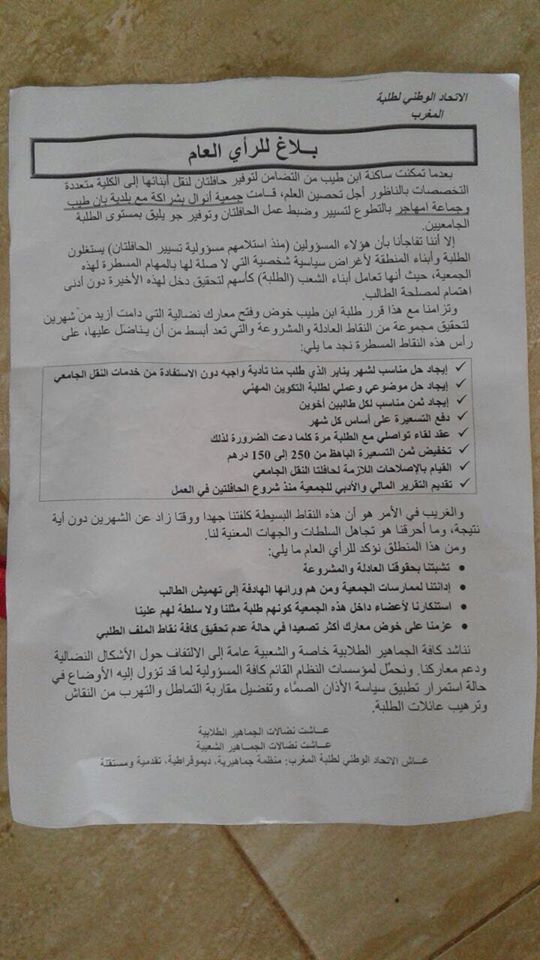 الاتحاد الوطني لطلبة
المغرب
بــلاغ للرأي العام
بعدما تمكنت ساكنة ابن طيب من التضامن لتوفير حافلتان لنقل أبنائها إلى الكلية متعددة
التخصصات بالناظور أجل تحصين العلم، قـامت جمعية أنوال بشراكة مع بلدية بان طيب
وجماعة امهاجر بالتطوع لتسيير وضبط عمل الحافلتان وتوفير جو يليق بمستوى الطلبة
الجامعيين.
إلا أننا تفاجأنا بأن هؤلاء المسؤولين (منذ استلامهم مسؤولية تسيير الحافلتان) يستغلون
الطلبة وأبناء المنطقة لأغراض سياسية شخصية التي لا صلة لها بالمهام المسطرة لهذه
الجمعية، حيث أنها تعامل أبناء الشعب (الطلبة) كأسهم لتحقيق دخل لهذه الأخيرة دون أدنى
اهتمام لمصلحة الطالب.
وتزامنا مع هذا قرر طلبة ابن طيب خوض وفتح معارك نضالية التي دامت أزيد من شهرين
لتحقيق مجموعة من النقاط العادلة والمشروعة والتي تعد أبسط من أن يناضل عليها، على
رأس هذه النقاط المسطرة نجد ما يلي:
✓ إيجاد حل مناسب لشهر يناير الذي طلب منا تأدية واجبه دون الاستفادة من خدمات النقل الجامعي
✓ إيجاد حل موضوعي وعملي لطلبة التكوين المهني
✓ إيجاد ثمن مناسب لكل طالبين أخوين
✓ دفع التسعيرة على أساس كل شهر
✓ عقد لقاء تواصلي مع الطلبة مرة كلما دعت الضرورة لذلك
✓ تخفيض ثمن التسعيرة الباهظ من 250 إلى 150 درهم
✓ القيام بالإصلاحات اللازمة لحافلتا النقل الجامعي
✓ تقديم التقرير المالي والأدبي للجمعية منذ شروع الحافلتين في العمل
والغريب في الأمر هو أن هذه النقاط البسيطة كلفتنا جهدا ووقتا زاد عن الشهرين دون أية
نتيجة، وما أحرقنا هو تجاهل السلطات والجهات المعنية لنا.
ومن هذا المنطلق نؤكد للرأي العام ما يلي:
• تشبتنا بحقوقنا العادلة والمشروعة
• إدانتنا لممارسات الجمعية ومن هم ورائها الهادفة إلى تهميش الطالب
• استنكارنا لأعضاء داخل هذه الجمعية كونهم طلبة مثلنا ولا سلطة لهم علينا
• عزمنا على خوض معارك أكثر تصعيدا في حالة عدم تحقيق كافة نقاط الملف الطلبي
نناشد كافة الجماهير الطلابية خاصة والشعبية عامة إلى الالتفاف حول الأشكال النضالية
ودعم معاركنا. ونحمّل لمؤسسات النظام القائم كافة المسؤولية لما قد تؤول إليه الأوضاع في
حالة استمرار تطبيق سياسة الأذان الصمّاء وتفضيل مقاربة التماطل والتهرب من النقاش
وترهيب عائلات الطلبة.
عــاشت نضالات الجماهير الطلابية
عــاشت نضالات الجمـاهير الشعبية
عــاش الاتحاد الوطني لطلبة المغرب: منظمة جماهيرية، ديموقراطية، تقدمية ومستقلة